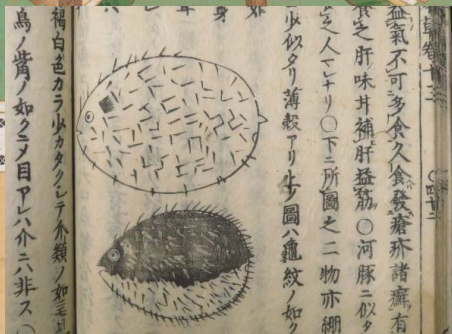 草卷十三 〇四十二
益氣不可多食久食發瘡疥諸癬有
食之肝味甘補肝益筋〇河豚ニ似タ
之人マレナリ〇下ニ所圖之二物亦綳
少似タリ薄殼アリ上ノ圖ハ龜紋ノ如ク
外
身
褐白色カラ少カタクシテ介類ノ如
鳥ノ觜ノ如クニメ目アレハ介ニハ非ス〇